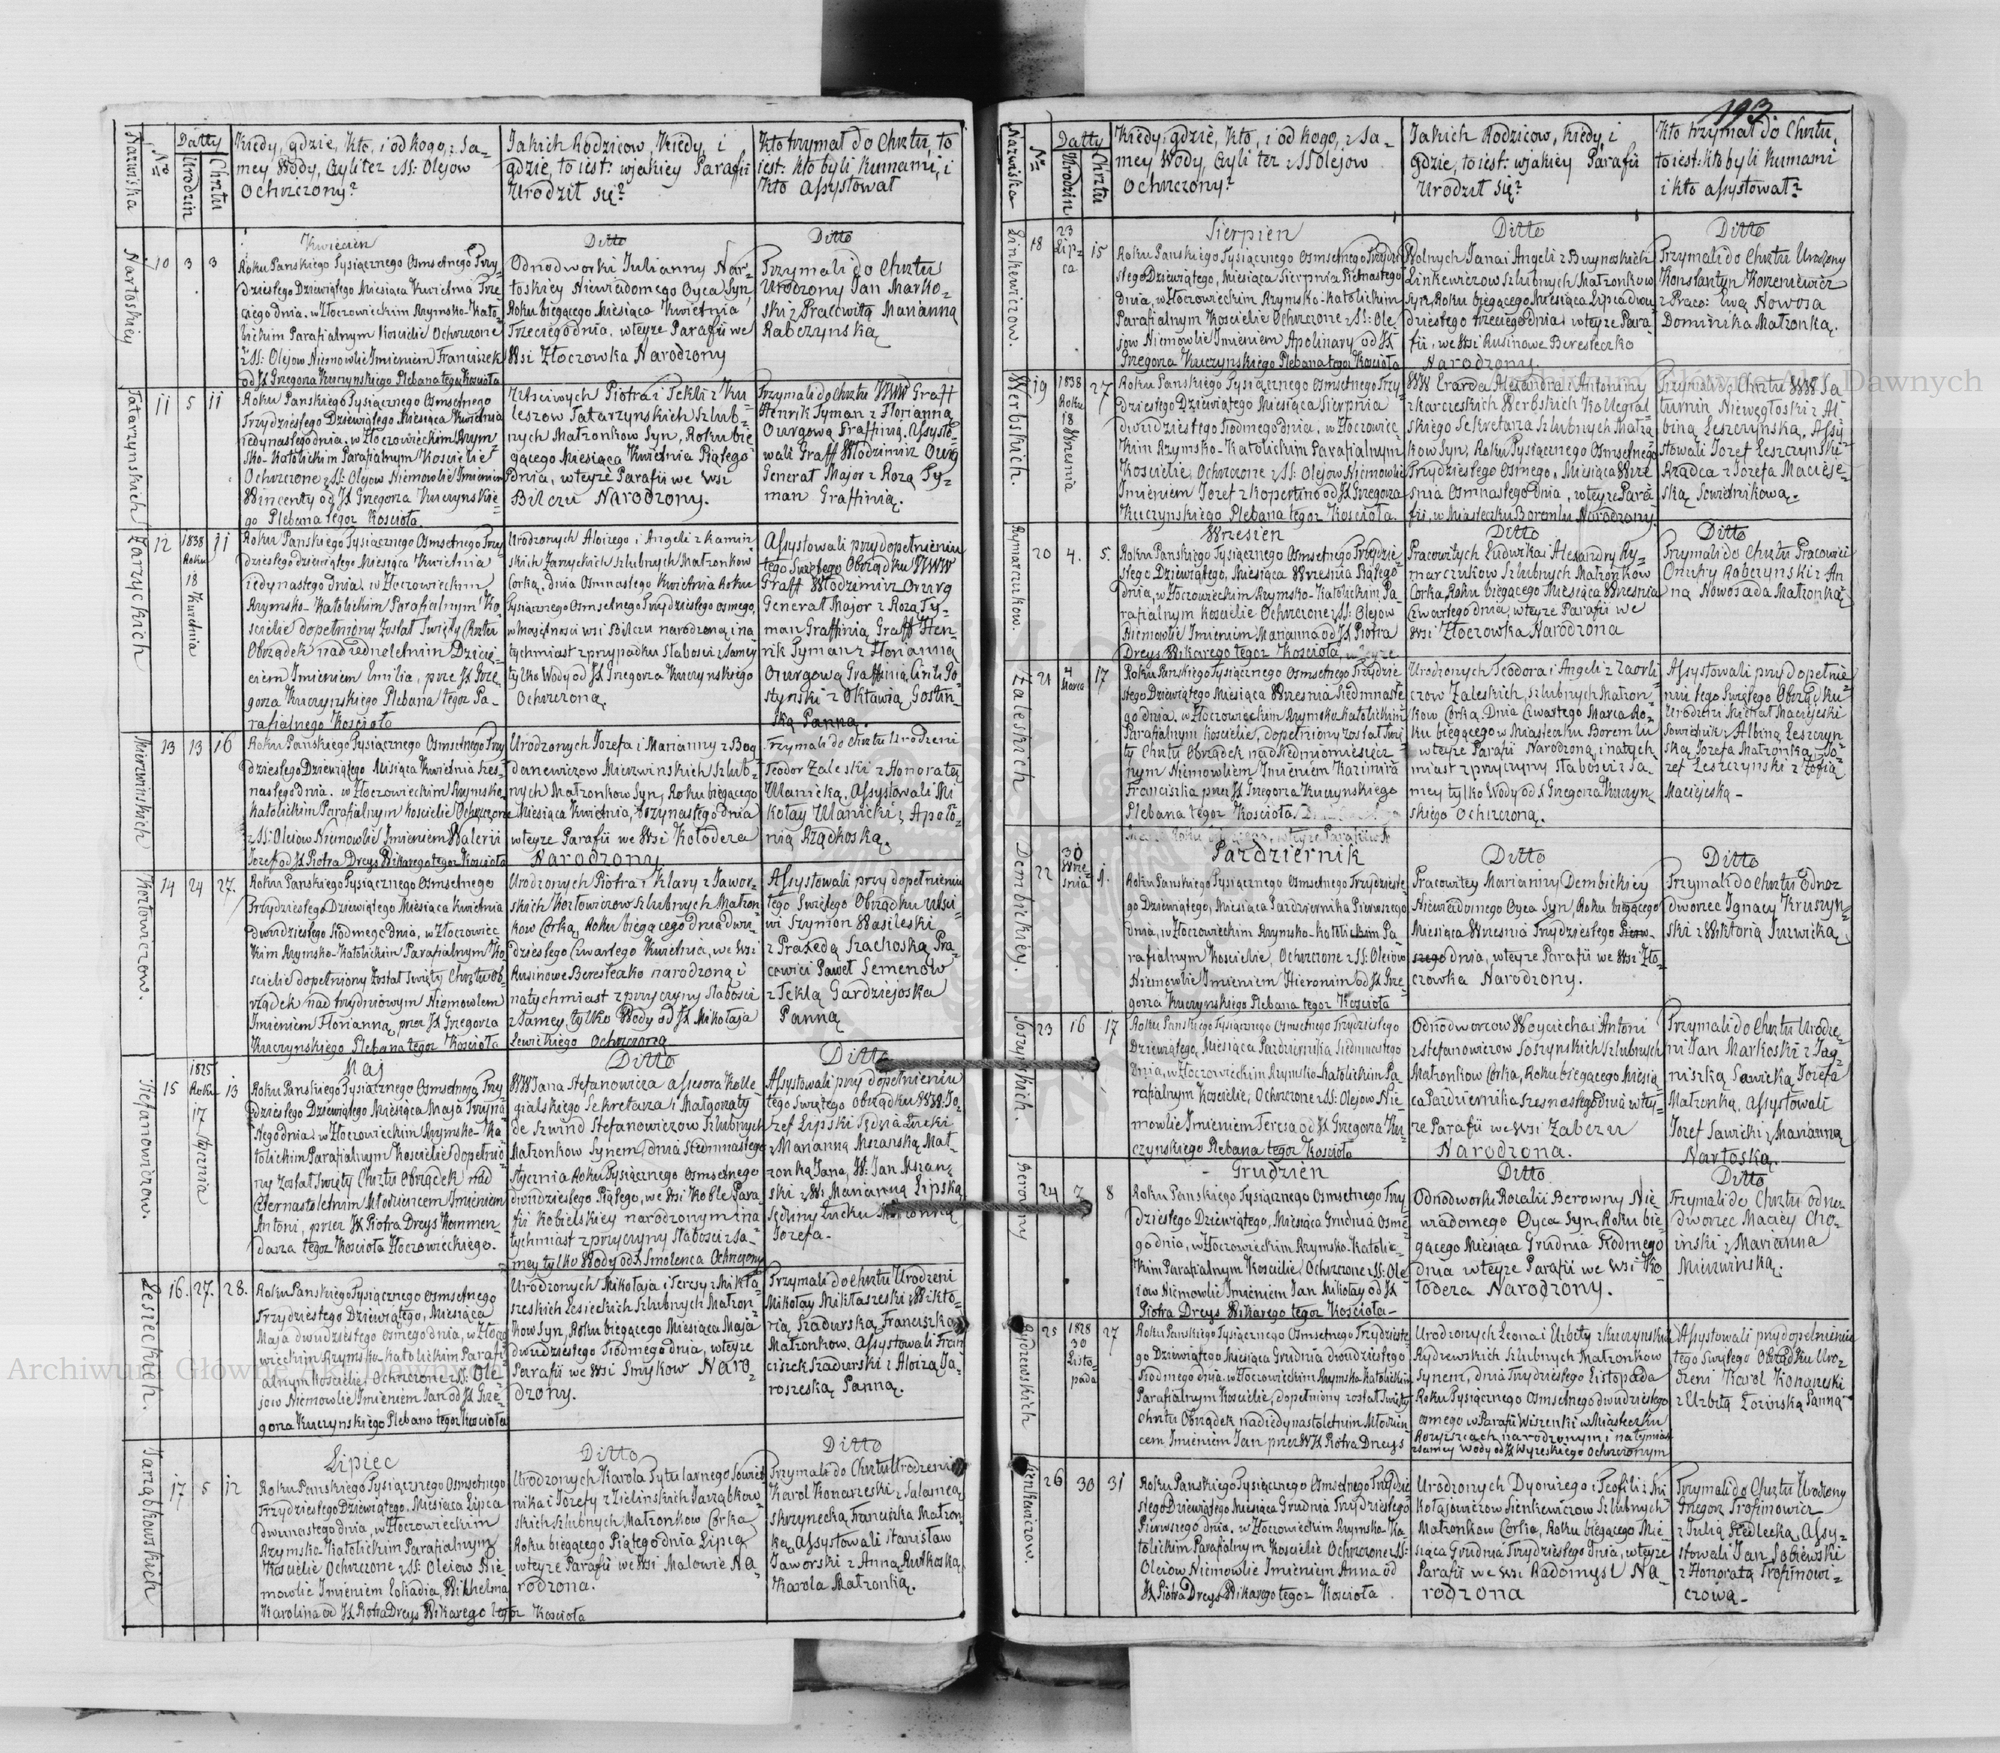 193.
Nazwiska
No
Datty
Urodzin
Chrztu
Kiedy, gdzie, Kto, i od kogo, z Sa-
mey Wody, Czyli też z SS: Olejow
Ochrzczony?
Jakich Rodzicow, Kiedy, i
gdzie, to iest: w jakiey Parafii
Urodził się?
Kto trzymał do Chrztu, to
iest: kto byli Kumami, i
Kto assystował
Nartoskiey
10
3
3
Kwiecień
Roku Panskiego Tysiącznego Osmsetnego Trzy-
dziestego Dziewiątego Miesiąca Kwietnia Trze-
ciego dnia. w Złoczowieckim Rzymsko-Kato-
lickim Parafialnym Kosciele Ochrzczone
z SS: Olejow Niemowlie Imieniem Franciszek
od JX Grzegorza Kuczynskiego Plebana tegoż Koscioła
Ditto
Odnodworki Julianny Nar-
toskiey Niewiadomego Oyca Syn,
Roku biegącego Miesiąca Kwietnia
Trzeciego dnia. wteyże Parafii we
Wsi Złoczowka Narodzony
Ditto
Trzymali do Chrztu
Urodzony Jan Marko-
ski z Pracowitą Marianną
Rabczynską
Tatarzynskich
11
5
11
Roku Panskiego Tysiącznego Osmsetnego
Trzydziestego Dziewiątego Miesiąca Kwietnia
iedynastego dnia. w Złoczowieckim Rzym-
sko-Katolickim Parafialnym Kosciele
Ochrzczone z SS: Olejow Niemowlie Imieniem
Wincenty od JX Grzegorza Kuczynskie-
go Plebana tegoż Koscioła.
Uczciwych Piotra i Tekli z Ku-
leszow Tatarzynskich Szlub-
nych Małżonkow Syn, Roku bie-
gącego Miesiąca Kwietnia Piątego
dnia, wteyże Parafii we wsi
Bilczu Narodzony.
Trzymali do Chrztu WWW Graff
Henrik Tyman z Florianną
Ożurgową Graffinią. Assysto-
wali Graff Włodzimirz Ożurg
Generał Major z Rozą Ty-
man Graffinią.
Zarzyckich
12
1838
Roku
18
Kwietnia
11
Roku Panskiego Tysiącznego Osmsetnego Trzy-
dziestego dziewiątego Miesiąca Kwietnia
iedynastego dnia. w Złoczowieckim
Rzymsko-Katolickim Parafialnym Ko-
sciele dopełniony został Swięty Chrztu
Obrządek nad iednoletnim Dzieci-
eciem Imieniem Emilia, przez JX Grze-
gorza Kuczynskiego Plebana tegoż Pa-
rafialnego Koscioła
Urodzonych Aloizego i Angeli z Kamin-
skich Zarzyckich Szlubnych Małżonkow
Corką, dnia Osmnastego Kwietnia Roku
Tysiącznego Osmsetnego Trzydziestego osmego,
w Majętnosci wsi Bilczu narodzoną i na
tychmiast z przypadku słabosci z Samey
tylko Wody od JX Grzegorza Kuczynskiego
Ochrzczoną
Assystowali przy dopełnieniu
tego Swiętego Obrządku WWW
Graff Włodzimirz Ożurg
Generał Major z Rozą Ty-
man Graffinią Graff Hen-
rik Tyman z Florianną
Ożurgową Graffinią Cirili Go-
stynski z Oktawią Gostin-
ską Panną.
Mierzwinskich
13
13
16
Roku Panskiego Tysiącznego Osmsetnego Trzy-
dziestego Dziewiątego Miesiąca Kwietnia Szes-
nastego dnia. w Złoczowieckim Rzymsko
Katolickim Parafialnym Kosciele Ochrzczone
z SS: Olejow Niemowlie Imieniem Walerii
Jozef od JX Piotra Dreys Wikarego tegoż Koscioła
Urodzonych Jozefa i Marianny z Bog-
danewiczow Mierzwinskich Szlub-
nych Małżonkow Syn, Roku biegącego
Miesiąca Kwietnia, trzynastego dnia
wteyże Parafii we Wsi Kołodeża
Narodzony.
Trzymali do Chrztu Urodzeni
Teodor Zaleski z Honoratą
Ulanicką, Assystowali Mi-
kołay Ulanicki z Apolo-
nią Rządkoską.
Kortowiczow.
14
24
27.
Roku Panskiego Tysiącznego Osmsetnego
Trzydziestego Dziewiątego Miesiąca Kwietnia
dwudziestego Siodmego dnia, w Złoczowiec
Kim Rzymsko-Katolickim Parafialnym Ko
sciele dopełniony został Swięty Chrztu ob-
rządek nad trzydniowym Niemowlem
Imieniem Florianną, przez JX Grzegorza
Kuczynskiego Plebana tegoż Kosciola
Urodzonych Piotra i Klary z Jawor-
skich Kortowiczow Szlubnych Małżon-
kow Corką, Roku biegącego dnia dwu-
dziestego Czwartego Kwietnia, we wsi
Rusinowe Beresteczko narodzoną i
natychmiast z przyczyny słabosci
z samey tylko Wody od JX Mikołaja
Lewickiego Ochrzczoną
Assystowali przy dopełnieniu
tego Swiętego Obrządku Ucsci
wi Szymon Wasileski
z Praxedą Szachoską Pra-
cowici Paweł Semenow
z Teklą Gardziejoską
Panną
Stefanowiczow.
15
1825
Roku
17
Stycznia
13
Maj
Roku Panskiego Tysiącznego Osmsetnego Trzy-
dziestego Dziewiątego Miesiąca Maja Trzyna-
stego dnia w Złoczowieckim Rzymsko-Ka-
tolickim Parafialnym Kosciele dopełnio-
ny został Swięty Chrztu Obrządek, nad
Czternastoletnim Młodzieńcem Imieniem
Antoni, przez JX Piotra Dreys Kommen-
darza tegoż Kosciola Złoczowieckiego.
Ditto
WW Jana Stefanowicza Assesora Kolle
gialskiego Sekretarza i Małgorzaty
de Szwind Stefanowiczow Szlubnych
Małżonkow Synem, dnia Siedmnastego
Stycznia Roku Tysiącznego Osmsetnego
dwudziestego Piątego, we Wsi Koble Para-
fii Kobielskiey narodzonym i na
tychmiast z przyczyny słabosci z Sa-
mey tylko Wody od X Smolenca Ochrzczony
Ditto
Assystowali przy dopełnieniu
tego Swiętego obrządku WW: Jo-
zef Lipski Sędzia Łucki
z Marianną Mszanską Mał-
żonką Jana, W: Jan Mszan-
ski z W: Marianną Lipską
Sędziny Łucku Małżonką
Jozefa.
Lesieckich.
16.
27.
28.
Roku Panskiego Tysiącznego Osmsetnego
Trzydziestego Dziewiątego, Miesiąca
Maja dwudziestego Osmego dnia, w Złoczo
wieckim Rzymsko-Katolickim Parafi-
alnym Kosciele, Ochrzczone z SS: Ole-
jow Niemowlie Imieniem Jan od JX Grze-
gorza Kuczynskiego Plebana tegoż Kosciola
Urodzonych Mikołaja i Teresy z Mikła-
szeskich Lesieckich Szlubnych Małżon-
kow Syn, Roku biegącego Miesiąca Maja
dwudziestego Siodmego dnia, wteyże
Parafii we Wsi Smykow Naro-
dzony.
Trzymali do chrztu Urodzeni
Mikołay Mikłaszeski z Wikto-
rią Szadurską, Franciszka
Małżonkow. Assystowali Fran-
ciszek Szadurski z Aloizą Ja-
roszeską Panną.
Jarząbkowskich
17
5
12
Lipiec
Roku Panskiego Tysiącznego Osmsetnego
Trzydziestego Dziewiątego, Miesiąca Lipca
dwunastego dnia, w Złoczowieckim
Rzymsko-Katolickim Parafialnym
Kosciele Ochrzczone z SS: Olejow Nie-
mowlie Imieniem Lokadia, Wilhelma
Karolina od JX Piotra Dreys Wikarego tegoż Kosciola
Ditto
Urodzonych Karola Tytularnego Sowiet
nika i Jozefy z Zielinskich Jarząbkow-
skich Szlubnych Małżonkow Corka
Roku biegącego Piątego dnia Lipca
wteyże Parafii we Wsi Malowie Na-
rodzona.
Ditto
Trzymali do Chrztu Urodzeni
Karol Konarzeski z Salameą
Skrzynecką, Franciszka Małżon-
ką, Assystowali Stanisław
Jaworski z Anną Rutkoską
Karola Małżonką.
Nazwiska
No
Datty
Urodzin
Chrztu
Kiedy, gdzie, Kto, i od kogo, z Sa-
mey Wody, Czyli też z SS Olejow
Ochrzczony?
Jakich Rodzicow, kiedy, i
gdzie, to iest: w jakiey Parafii
Urodził się?
Kto trzymał do Chrztu,
to iest: kto byli Kumami
i kto assystował?
Linkewiczow.
18
23
Lip-
ca
15
Sierpień
Roku Panskiego Tysiącznego Osmsetnego Trzydzie
stego Dziewiątego, Miesiąca Sierpnia Pietnastego
dnia, w Złoczowieckim Rzymsko-Katolickim
Parafialnym Kosciele Ochrzczone z SS: Ole-
jow Niemowlie Imieniem, Apolinary od JX
Grzegorza Kuczynskiego Plebana tegoż Kosciola
Ditto
Wolnych Jana i Angeli z Buynoskich
Linkewiczow Szlubnych Małżonkow
Syn, Roku biegącego Miesiąca Lipca dwu-
dziestego trzeciego dnia wteyże Para-
fii, we Wsi Rusinowe Beresteczko
Narodzony
Ditto
Trzymali do Chrztu Urodzony
Konstantyn Korzeniewicz
z Praco: Ewą Nowosa
Dominika Małżonką.
Werbskich.
19
1838
Roku
18
Wrzesnia
27
Roku Panskiego Tysiącznego Osmsetnego Trzy-
dziestego Dziewiątego Miesiąca Sierpnia
dwudziestego Siodmego dnia, w Złoczowiec-
Kim Rzymsko-Katolickim Parafialnym
Kosciele, Ochrzczone z SS: Olejow Niemowlie
Imieniem Jozef z Kopertino od JX Grzegorza
Kuczynskiego Plebana tegoż Kosciola.
WW Erarda Alexandra i Antoniny
z Karczeskich Werbskich Kollegial-
skiego Sekretarza Szlubnych Małżą-
kow Syn, Roku Tysiącznego Osmsetnego
Trzydziestego Osmego, Miesiąca Wrze-
snia Osmnastego Dnia, wteyże Para-
fii, w Miasteczku Boremlu Narodzony.
Trzymali do Chrztu WW Sa-
turnin Niewęgłoski z Al-
biną Leszczynską, Assy-
stowali Jozef Leszczynski
Rządca z Jozefą Macieje-
ską Sowietnikową.
Rymarczukow.
20
4.
5.
Wrzesien
Roku Panskiego Tysiącznego Osmsetnego Trzydzie-
stego Dziewiątego, Miesiąca Wrzesnia Piątego
Dnia, w Złoczowieckim Rzymsko-Katolickim Pa-
rafialnym Kosciele Ochrzczone z SS: Olejow
Niemowlie Imieniem Marianna od JX Piotra
Dreys Wikarego tegoż Kosciola,
Ditto
Pracowitych Ludwika i Alexandry Ry-
marczukow Szlubnych Małżonkow
Corka, Roku biegącego Miesiąca Wrzesnia
Czwartego dnia, wteyże Parafii we
Wsi Złoczowka Narodzona
Ditto
Trzymali do Chrztu Pracowici
Onufry Rabczynski z An-
ną Nowosada Małżonką
Zaleskich
21
4
Marca
17
Roku Panskiego Tysiącznego Osmsetnego Trzydzie
stego Dziewiątego Miesiąca Wrzesnia Siedmnaste-
go dnia. w Złoczowieckim Rzymsko Katolickim
Parafialnym Kosciele, dopełniony został Swię-
ty Chrztu Obrządek nad Siedmiomiesięcz-
nym Niemowliem Imieniem Kazimira
Franciszka przez JX Grzegorza Kuczynskiego
Plebana tegoż Kosciola
Urodzonych Teodora i Angeli z Laorli-
czow Zaleskich, Szlubnych Małżon-
kow Corką. Dnia Czwartego Marca Ro-
ku biegącego w Miasteczku Boremlu
wteyże Parafii Narodzoną i natych-
miast z przyczyny słabosci z Sa-
mey tylko Wody od X Grzegorza Kuczyn-
skiego Ochrzczoną.
Assystowali przy dopełnie
niu tego Swiętego Obrządku
Urodzeni Michał Maciejeski
Sowietnik z Albiną Leszczyn
ską Jozefa Małżonką, Jo-
zef Leszczynski z Zofią
Maciejeską -
Dembickiey.
22
30
Wrze-
snia
1.
Pazdziernik
Roku Panskiego Tysiącznego Osmsetnego Trzydzieste-
go Dziewiątego, Miesiąca Pazdziernika Pierwszego
dnia, w Złoczowieckim Rzymsko-Katolickim Pa-
rafialnym Kosciele, Ochrzczone z SS: Olejow
Niemowlie Imieniem Hieronim od JX Grze-
gorza Kuczynskiego Plebana tegoż Kosciola
Ditto
Pracowitey Marianny Dembickiey
Niewiadomego Oyca Syn, Roku biegącego
Miesiąca Wrzesnia Trzydziestego Pierw-
szego dnia, wteyże Parafii we Wsi Zło-
czowka Narodzony.
Ditto
Trzymali do Chrztu Odno-
dworzec Ignacy Kruszyn-
ski z Wiktorią Jurwicką
Soszynskich.
23
16
17
Roku Panskiego Tysiącznego Osmsetnego Trzydziestego
Dziewiątego, Miesiąca Pazdziernika Siedmnastego
Dnia, w Złoczowieckim Rzymsko-Katolickim Pa-
rafialnym Kosciele, Ochrzczone z SS: Olejow Nie-
mowlie Imieniem Teresa od JX Grzegorza Ku-
czynskiego Plebana tegoż Kosciola
Odnodworcow Woyciecha i Antoni
z Stefanowiczow Soszynskich Szlubnych
Małżonkow Corka, Roku biegącego Miesią-
ca Pazdziernika Szesnastego dnia wtey-
że Parafii we Wsi Zabczu
Narodzona.
Trzymali do Chrztu Urodze-
ni Jan Markoski z Jag-
niszką Sawicką Jozefa
Małżonką, Assystowali
Jozef Sawicki z Marianną
Nartoską.
Berowny
24
7
8
Grudzien
Roku Panskiego Tysiącznego Osmsetnego Trzy
dziestego Dziewiątego, Miesiąca Grudnia Osme-
go dnia, w Złoczowieckim Rzymsko-Katolic-
Kim Parafialnym Kosciele Ochrzczone z SS: Ole-
iow Niemowlie Imieniem Jan Mikołay od JX
Piotra Dreys Wikarego tegoż Kosciola -
Ditto
Odnodworki Rozalii Berowny Nie-
wiadomego Oyca Syn, Roku bie-
gącego Miesiąca Grudnia Siodmego
dnia wteyże Parafii we Wsi Ko-
łodeża Narodzony.
Ditto
Trzymali do Chrztu Odno-
dworzec Maciey Cho-
inski z Marianną
Mierzwinską.
Rydzewskich
25
1828
30
Listo-
pada
27
Roku Panskiego Tysiącznego Osmsetnego Trzydzieste-
go Dziewiątego Miesiąca Grudnia dwudziestego
Siodmego dnia. w Złoczowieckim Rzymsko-Katolickim
Parafialnym Kosciele, dopełniony został Swięty
Chrztu Obrządek nad iedynastoletnim Młodzień-
cem Imieniem Jan przez WJX Piotra Dreys
Urodzonych Leona i Elzbiety z Kuczynskich
Rydzewskich Szlubnych Małżonkow
Synem, dnia Trzydziestego Listopada
Roku Tysiącznego Osmsetnego dwudziestego
osmego w Parafii Wiszenki w Miasteczku
Rożyszczach narodzonym i natymiast
z samey Wody od JX Wyzeskiego Ochrzczonym
Assystowali przy dopełnieniu
tego Swiętego Obrządku Uro-
dzeni Karol Konarzeski
z Elzbietą Łozinską Panną
Sienkewiczow.
26
30
31
Roku Panskiego Tysiącznego Osmsetnego Trzydzie
stego Dziewiątego Miesiąca Grudnia Trzydziestego
Pierwszego dnia. w Złoczowieckim Rzymsko-Ka-
tolickim Parafialnym Kosciele Ochrzczone z SS:
Olejow Niemowlie Imieniem Anna od
JX Piotra Dreys Wikarego tegoż Kosciola.
Urodzonych Dyonizego i Teofili z Mi-
kołajowiczow Sienkewiczow Szlubnych
Małżonkow Corka, Roku biegącego Mie-
siąca Grudnia Trzydziestego Dnia, wteyże
Parafii we Wsi Radomysl Na-
rodzona
Trzymali do Chrztu Urodzony
Grzegorz Trofimowicz
z Julią Siedlecką, Assy-
stowali Jan Sobiewski
z Honoratą Trofimowi-
czową -
Archiwum Główne Akt Dawnych
Archiwum Główne Akt Dawnych